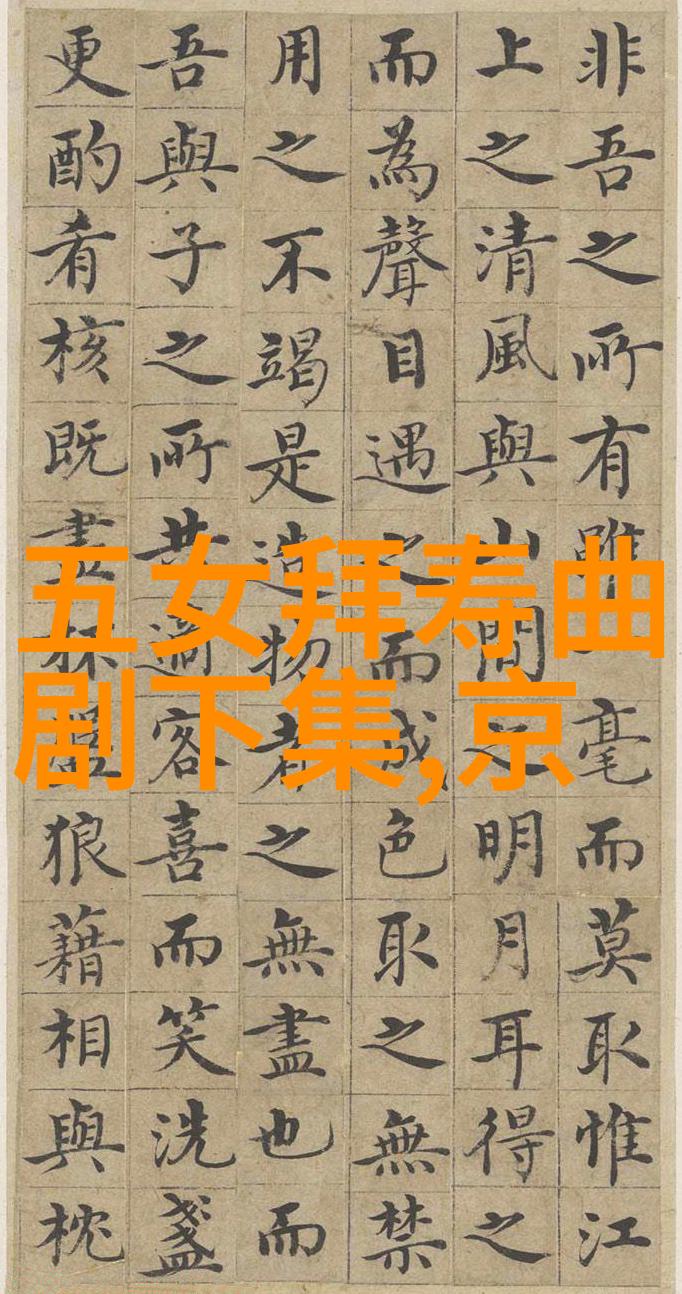 五女拜寿曲
剧下集,京
非吾之所有雖一毫而莫取惟江
上之清風與山間之明月耳得之
而為聲目遇之而成色取之無禁
用之不竭是造物者之無盡也而
吾與子之所共適客喜而笑洗盞
更酌肴核既盡杯盤狼藉相與枕